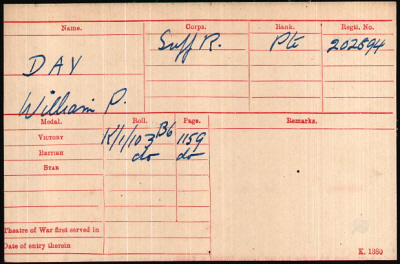 Name. Corps. Rank. Regtl. No.
Suff R. Pte 202594
DAY
William P.
Medal. Roll. Page. Remarks.
VICTORY K/1/103 B6 1159
BRITISH do do
STAR
Theatre of War first served in
Date of entry therein
K. 1380